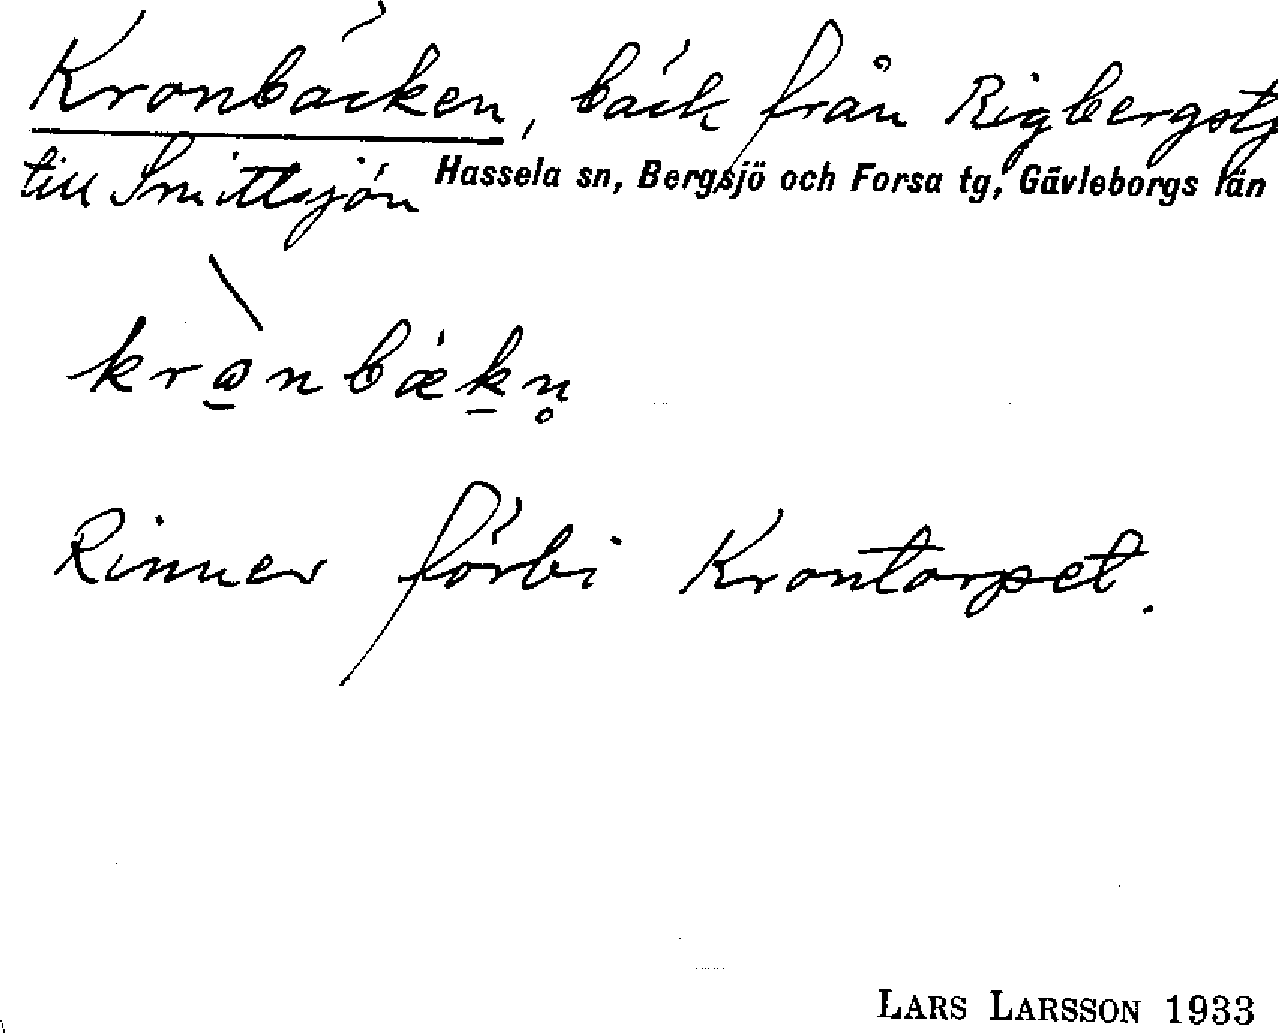 Kronbäcken, bäck från Rigbergstj
till Snittsjön Hassela sn, Bergsjö och Forsa tg, Gävleborgs län
Rinner förbi Krontorpet.
LARS LARSSON 1933